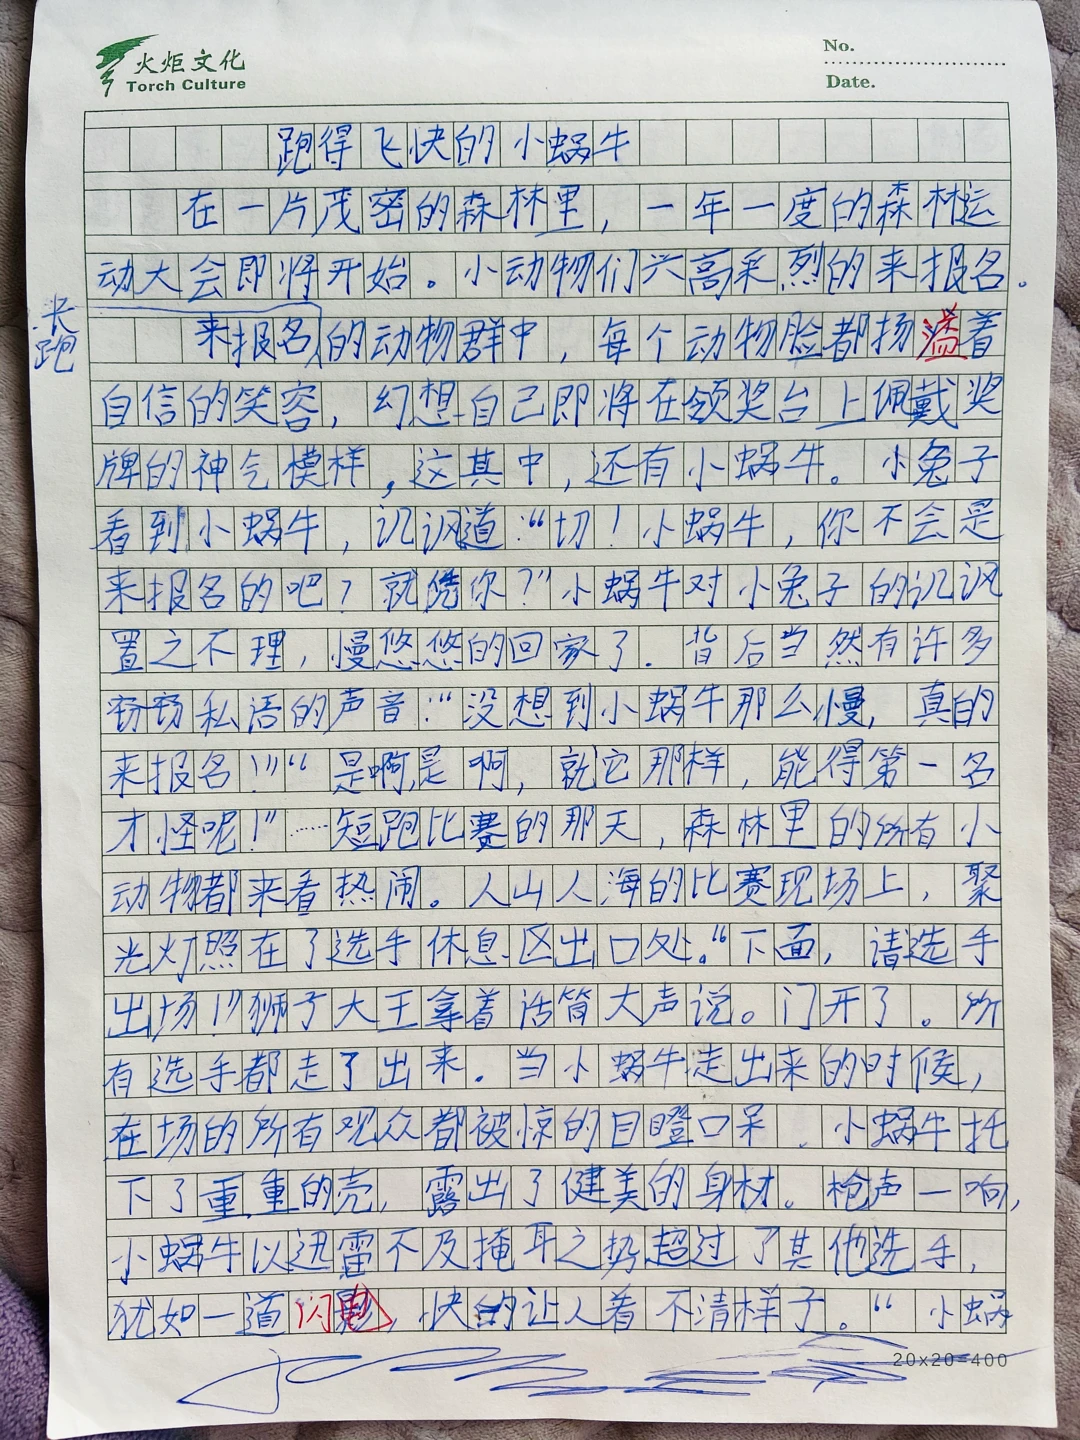 火炬文化
Torch Culture
No.
Date.
跑得飞快的小蜗牛
在一片茂密的森林里，一年一度的森林运
动大会即将开始。小动物们兴高采烈的来报名。
来报名的动物群中，每个动物脸都扬溢着
自信的笑容，幻想自己即将在领奖台上佩戴奖
牌的神气模样，这其中，还有小蜗牛。小兔子
看到小蜗牛，讥讽道：“切！小蜗牛，你不会是
来报名的吧？就凭你？”小蜗牛对小兔子的讥讽
置之不理，慢悠悠的回家了。背后当然有许多
窃窃私语的声音：“没想到小蜗牛那么慢，真的
来报名！”“是啊，是啊，就它那样，能得第一名
才怪呢！”……短跑比赛的那天，森林里的所有小
动物都来看热闹。人山人海的比赛现场上，聚
光灯照在了选手休息区出口处。“下面，请选手
出场！”狮子大王拿着话筒大声说。门开了。所
有选手都走了出来。当小蜗牛走出来的时候，
在场的所有观众都被惊的目瞪口呆。小蜗牛托
下了重重的壳，露出了健美的身材。枪声一响，
小蜗牛以迅雷不及掩耳之势超过了其他选手，
犹如一道闪影，快的让人看不清样子。“小蜗
20×20=400